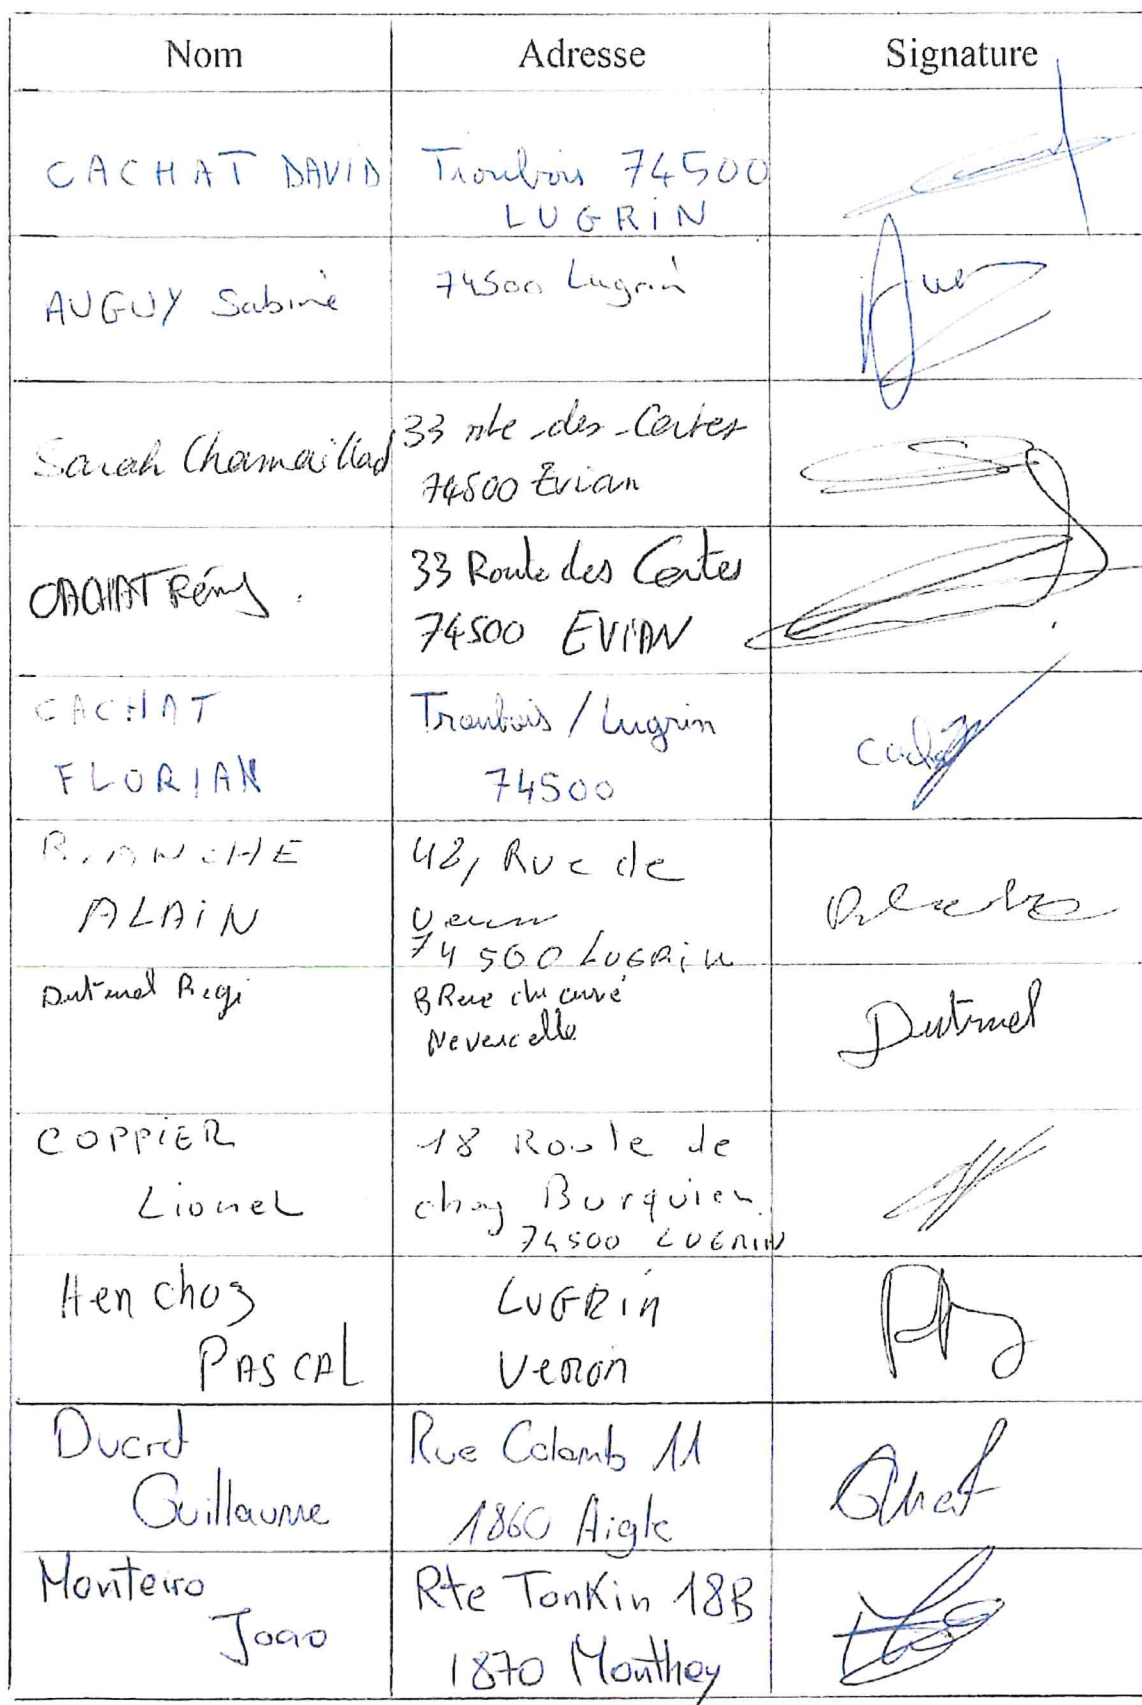 Nom Adresse Signature
CACHAT DAVID Troubois 74500
LUGRIN
AUGUY Sabine 74500 Lugrin
Sarah Chamaillard 33 rte des Certes
74500 Evian
CACHAT Rémy. 33 Route des Certes
74500 EVIAN
CACHAT Troubois / Lugrin
FLORIAN 74500
BLANCHE 42, Rue de
ALAIN
74 500 LUGRIN
Dutruel Regi 8 Rue du curé
Neuvecelle Dutruel
COPPIER 18 Route de
Lionel chez Burquier
74500 LUGRIN
Henchoz LUGRIN
PASCAL Veron
Ducret Rue Colomb 11
Guillaume 1860 Aigle
Monteiro Rte Tonkin 18B
Joao 1870 Monthey